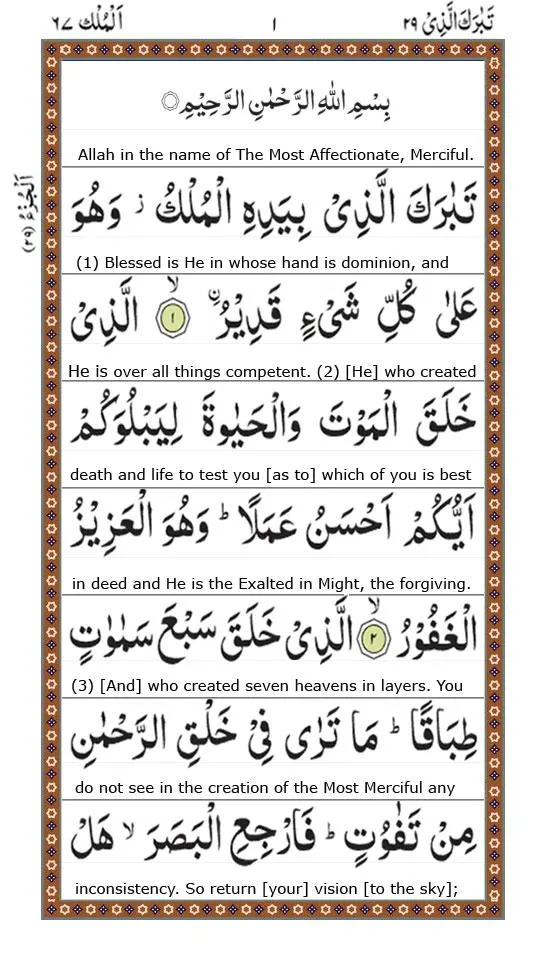 تَبٰرَكَ الَّذِیْ ٢٩
١
اَلْمُلْك ٦٧
اَلْجُزْءُ (٢٩)
بِسْمِ اللّٰهِ الرَّحْمٰنِ الرَّحِیْمِ
Allah in the name of The Most Affectionate, Merciful.
تَبٰرَكَ الَّذِیْ بِیَدِهِ الْمُلْكُ ز وَهُوَ
(1) Blessed is He in whose hand is dominion, and
عَلٰی كُلِّ شَیْءٍ قَدِیْرُ ۙ ١ الَّذِیْ
He is over all things competent. (2) [He] who created
خَلَقَ الْمَوْتَ وَالْحَیٰوةَ لِیَبْلُوَكُمْ
death and life to test you [as to] which of you is best
اَیُّكُمْ اَحْسَنُ عَمَلًا ؕ وَهُوَ الْعَزِیْزُ
in deed and He is the Exalted in Might, the forgiving.
الْغَفُوْرُ ۙ ٢ الَّذِیْ خَلَقَ سَبْعَ سَمٰوٰتٍ
(3) [And] who created seven heavens in layers. You
طِبَاقًا ؕ مَا تَرٰی فِیْ خَلْقِ الرَّحْمٰنِ
do not see in the creation of the Most Merciful any
مِنْ تَفٰوُتٍ ؕ فَارْجِعِ الْبَصَرَ ۙ هَلْ
inconsistency. So return [your] vision [to the sky];